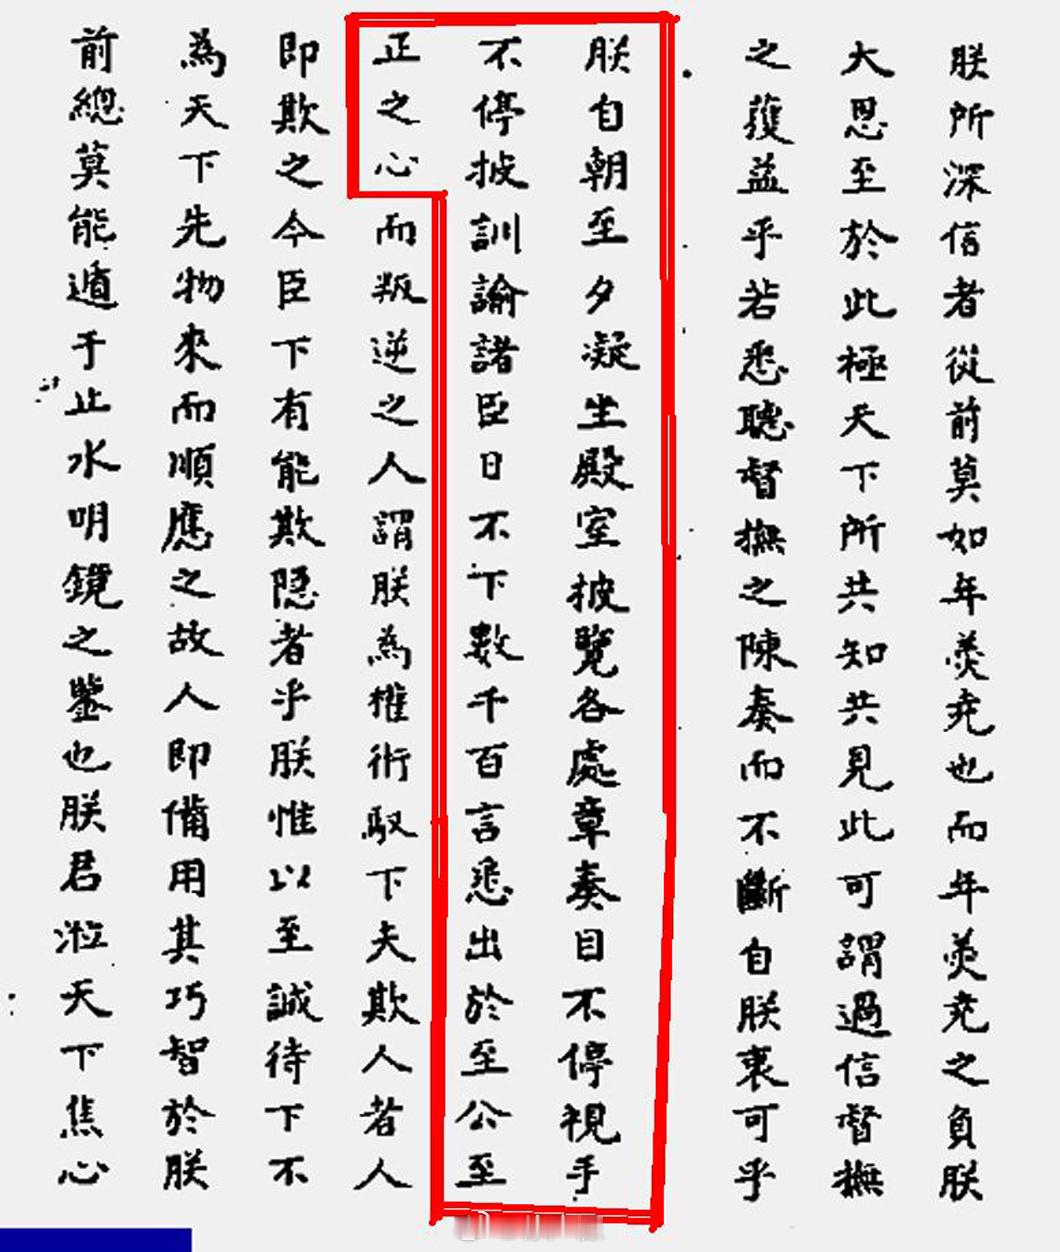 朕所深信者從前莫如年羹尭也而年羹尭之負朕
大恩至於此極天下所共知共見此可謂過信督撫
之獲益乎若悉聽督撫之陳奏而不斷自朕衷可乎
朕自朝至夕凝坐殿室披覽各處章奏目不停視手
不停披訓諭諸臣日不下數千百言悉出於至公至
正之心而叛逆之人謂朕為權術馭下夫欺人者人
即欺之今臣下有能欺隱者乎朕惟以至誠待下不
為天下先物來而順應之故人即備用其巧智於朕
前總莫能遁于止水明鏡之鑒也朕君涖天下焦心